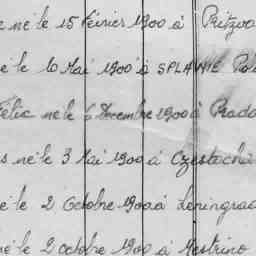 né le 15 Février 1900 à Pritzwa
né le 10 Mai 1900 à SPLAWIE Pol
Félic né le 6 Decembre 1900 à Prado
s né le 3 Mai 1900 à Czestocha
né le 2 Octobre 1900 à Leningrad
né le 2 octobre 1900 à Mestrino